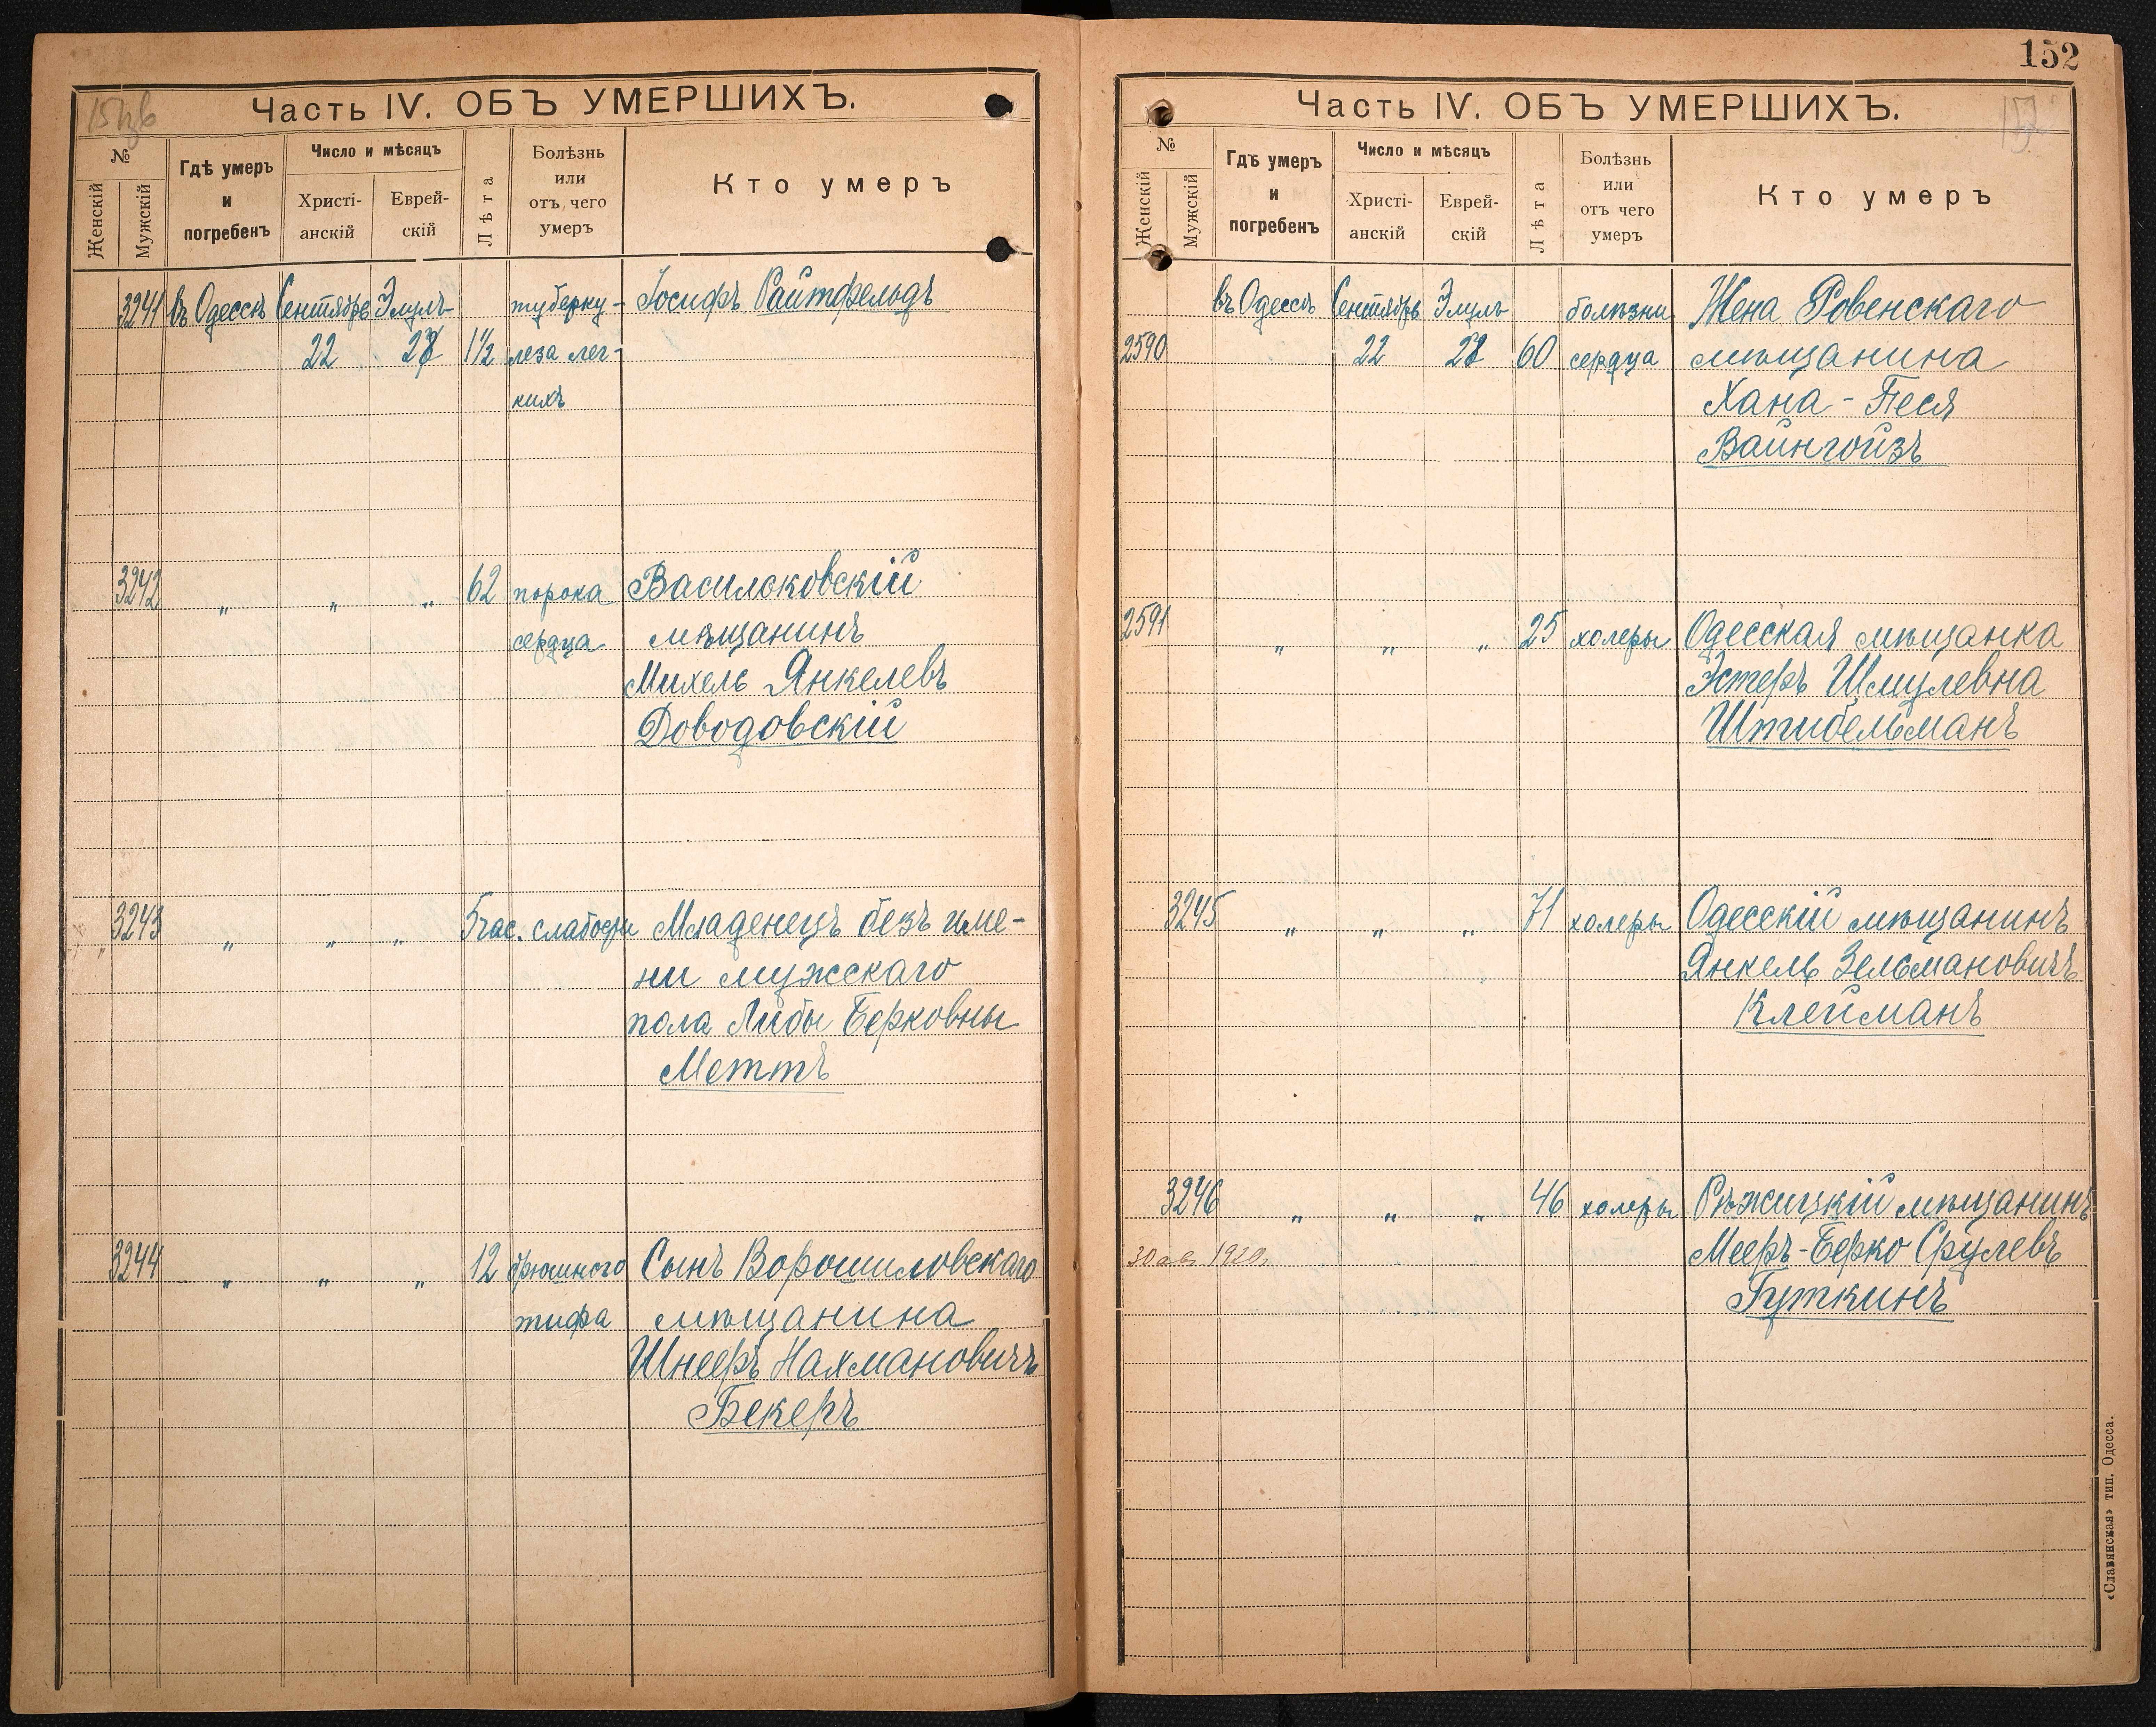 Часть IV. ОБЪ УМЕРШИХЪ.
№
Женскій
Мужскій
Гдѣ умеръ
и
погребенъ
Число и мѣсяцъ
Христі-
анскій
Еврей-
скій
Лѣта
Болѣзнь
или
отъ чего
умеръ
Кто умеръ
3241 въ Одессѣ Сентябрь Элулъ туберку- Іосифъ Райтфельдъ
22 28 1½ леза лег-
кихъ
3242 „ „ „ 62 порока Васильковскій
сердца мѣщанинъ
Михель Янкелевъ
Доводовскій
3243 „ „ „ 5 час. слабости Младенецъ безъ име-
ни мужскаго
пола Либы Берковны
Меттъ
3244 „ „ „ 12 брюшного Сынъ Ворошиловскаго
тифа мѣщанина
Шнееръ Нахмановичъ
Бекеръ
152
Часть IV. ОБЪ УМЕРШИХЪ.
№
Женскій
Мужскій
Гдѣ умеръ
и
погребенъ
Число и мѣсяцъ
Христі-
анскій
Еврей-
скій
Лѣта
Болѣзнь
или
отъ чего
умеръ
Кто умеръ
въ Одессѣ Сентябрь Элулъ болѣзни Жена Ровенскаго
2590 22 28 60 сердца мѣщанина
Хана-Песя
Вайнгойзъ
2591 „ „ „ 25 холеры Одесская мѣщанка
Эстеръ Шмулевна
Штибельманъ
3245 „ „ „ 71 холеры Одесскій мѣщанинъ
Янкель Зельмановичъ
Клейманъ
3246 „ „ „ 46 холеры Рѣжицкій мѣщанинъ
30 ав. 1920. Мееръ-Берко Срулевъ
Гуткинъ
«Славянская» тип. Одесса.